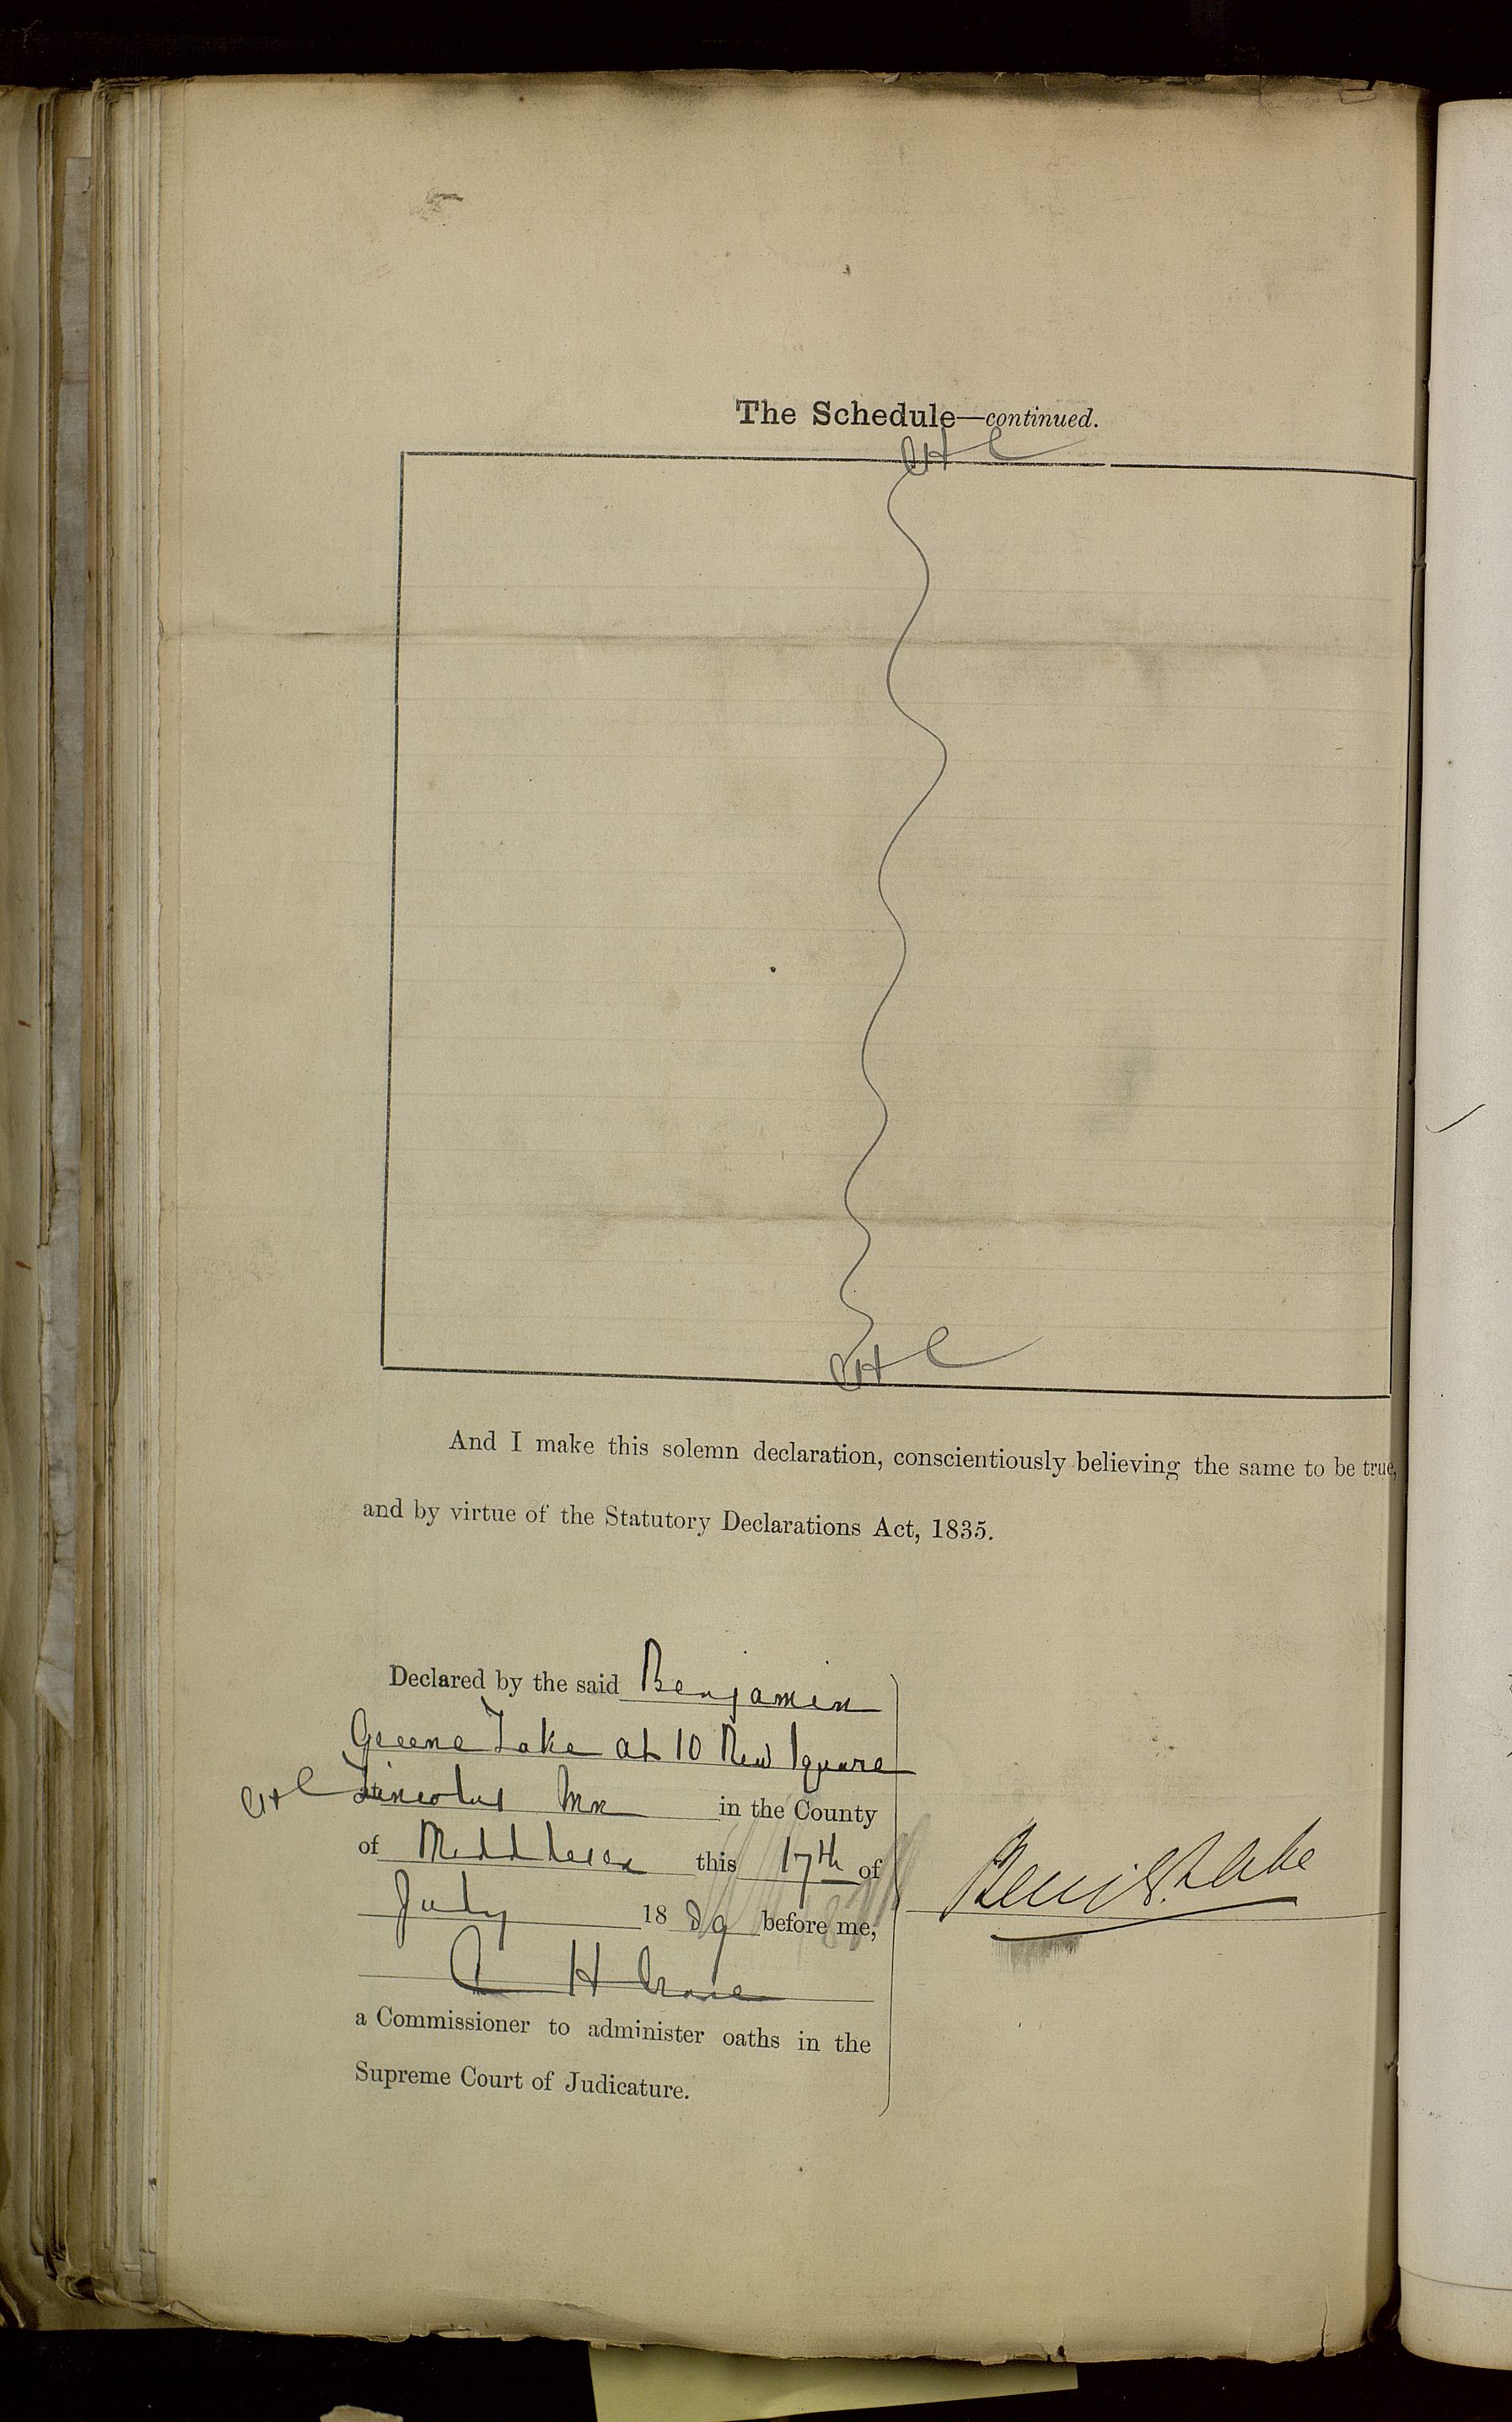 The Schedule—continued.
AHC
AHC
And I make this solemn declaration, conscientiously believing the same to be true,
and by virtue of the Statutory Declarations Act, 1835.
Declared by the said Benjamin
Greene Lake at 10 New Square
AHC Lincolns Inn in the County
of Middlesex this 17th of
July 1889 before me,
Benj G. Lake
A H
a Commissioner to administer oaths in the
Supreme Court of Judicature.